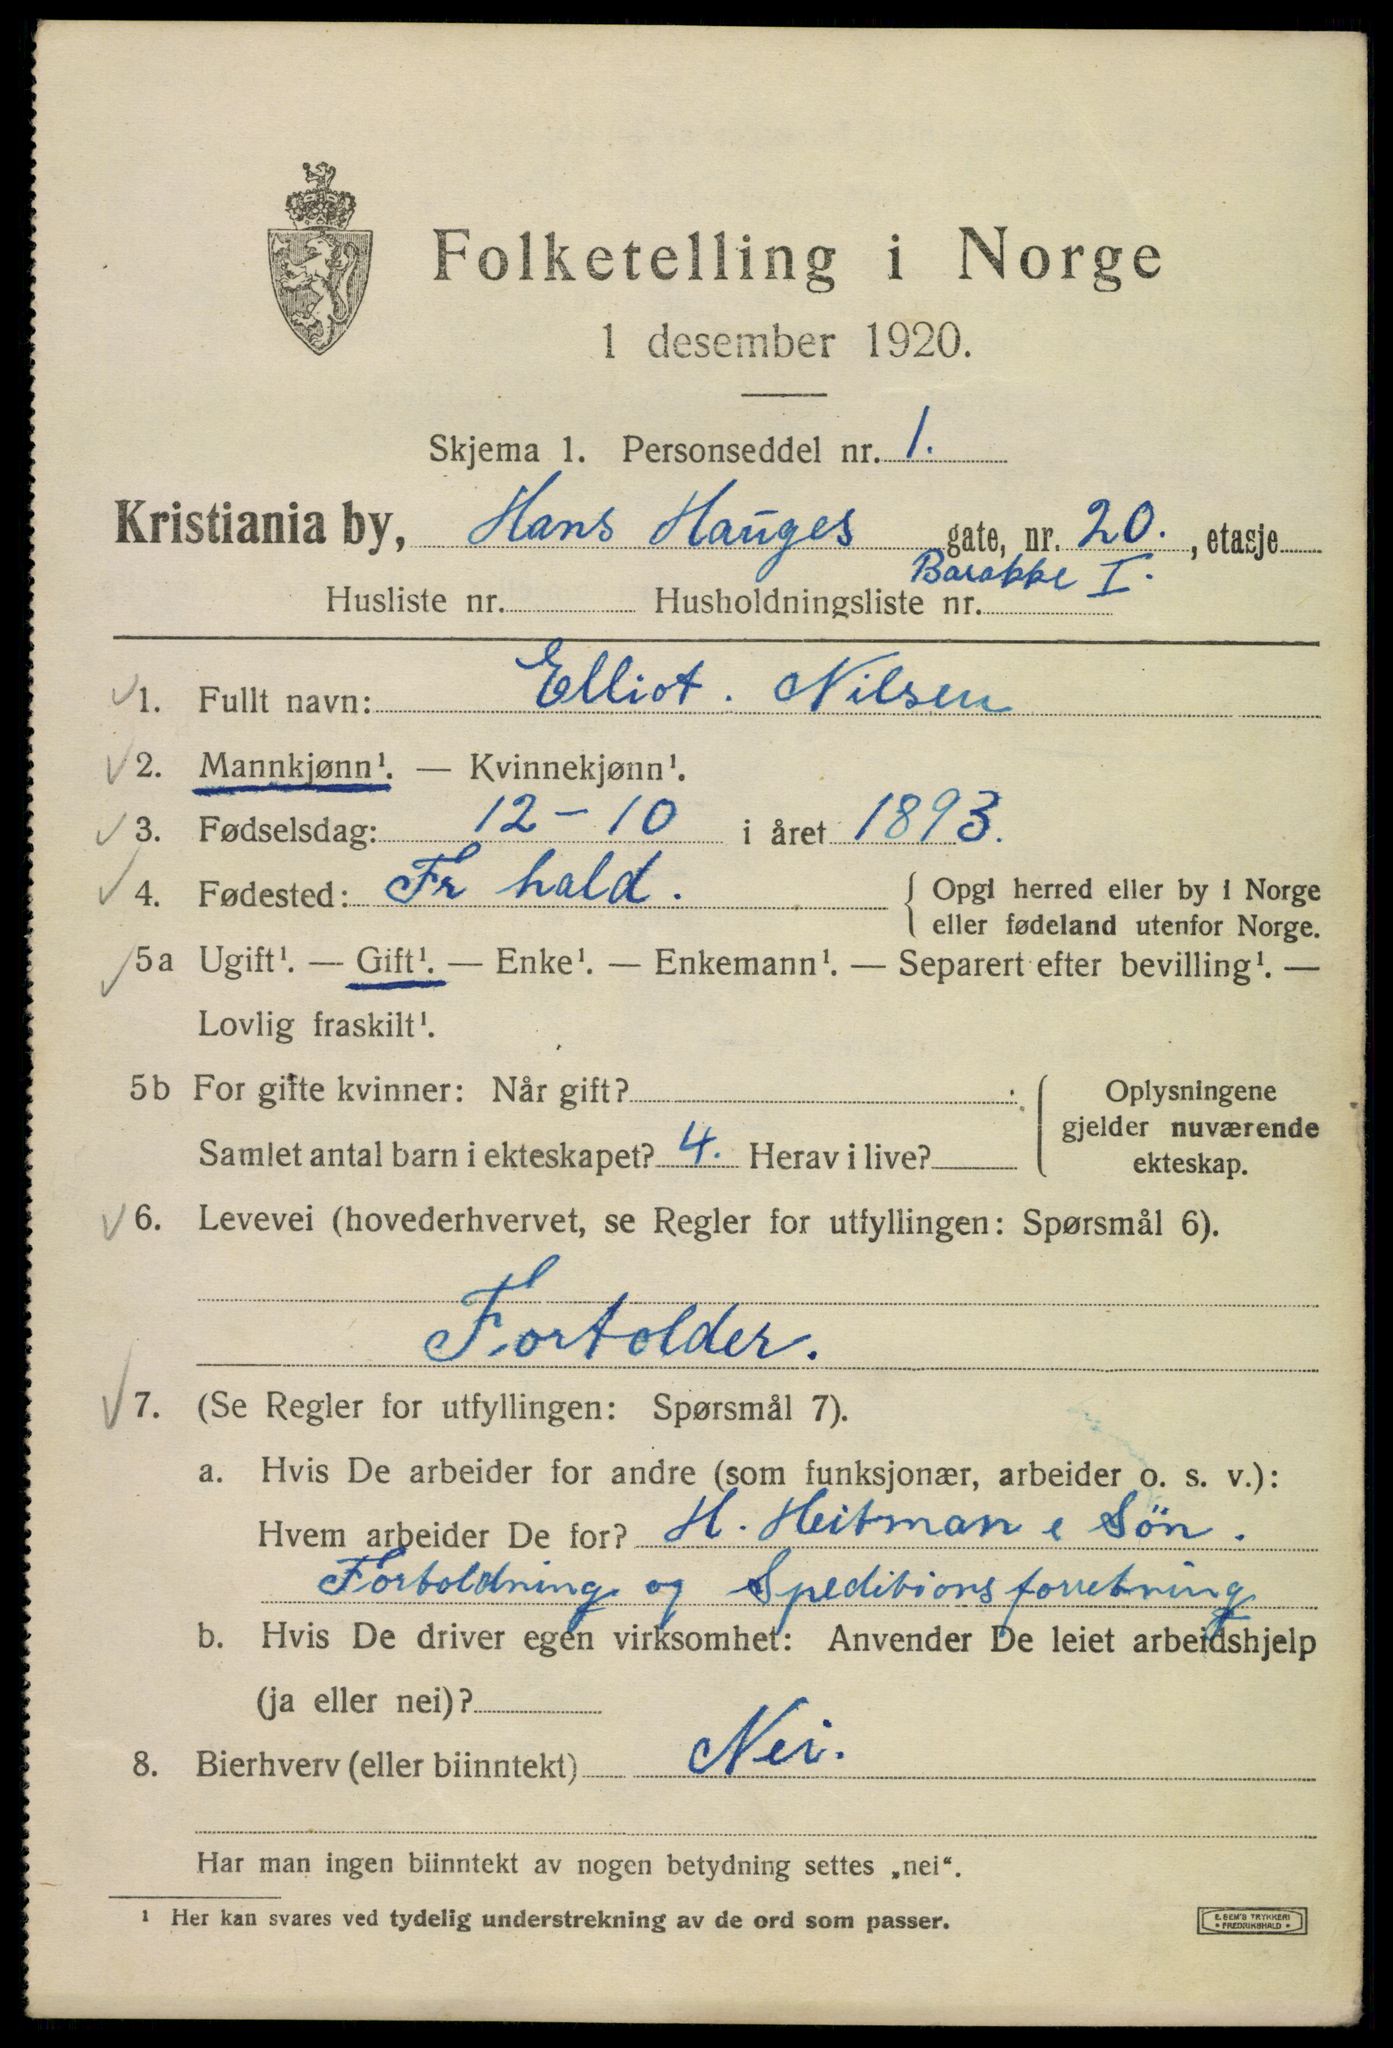 Folketelling i Norge
1 desember 1920.
Skjema 1. Personseddel nr. 1.
Kristiania by, Hans Hauges gate, nr. 20. , etasje
Barakke I.
Husliste nr. Husholdningsliste nr.
1. Fullt navn: Elliot. Nilsen
2. Mannkjønn¹. — Kvinnekjønn¹.
3. Fødselsdag: 12 – 10 i året 1893.
4. Fødested: Fr hald. { Opgi herred eller by i Norge
eller fødeland utenfor Norge.
5a Ugift¹. — Gift¹. — Enke¹. — Enkemann¹. — Separert efter bevilling¹. —
Lovlig fraskilt¹.
5b For gifte kvinner: Når gift? { Oplysningene
gjelder nuværende
Samlet antal barn i ekteskapet? 4. Herav i live? ekteskap.
6. Levevei (hovederhvervet, se Regler for utfyllingen: Spørsmål 6).
Fortolder.
7. (Se Regler for utfyllingen: Spørsmål 7).
a. Hvis De arbeider for andre (som funksjonær, arbeider o. s. v.):
Hvem arbeider De for? H. Heitman & Sön.
Fortoldning og Speditionsforretning
b. Hvis De driver egen virksomhet: Anvender De leiet arbeidshjelp
(ja eller nei)?
8. Bierhverv (eller biinntekt) Nei.
Har man ingen biinntekt av nogen betydning settes „nei“.
¹ Her kan svares ved tydelig understrekning av de ord som passer.
E. SEM'S TRYKKERI
• FREDRIKSHALD •